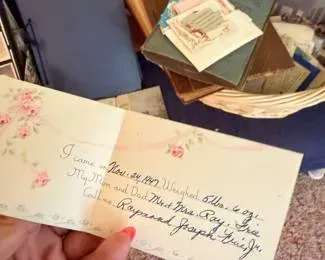 I came on Nov. 24, 1947 Weighed 5 lbs. 6 ozs.
My Mom and Dad Mr. & Mrs. Ray.
Call me Raymond Joseph Jr.